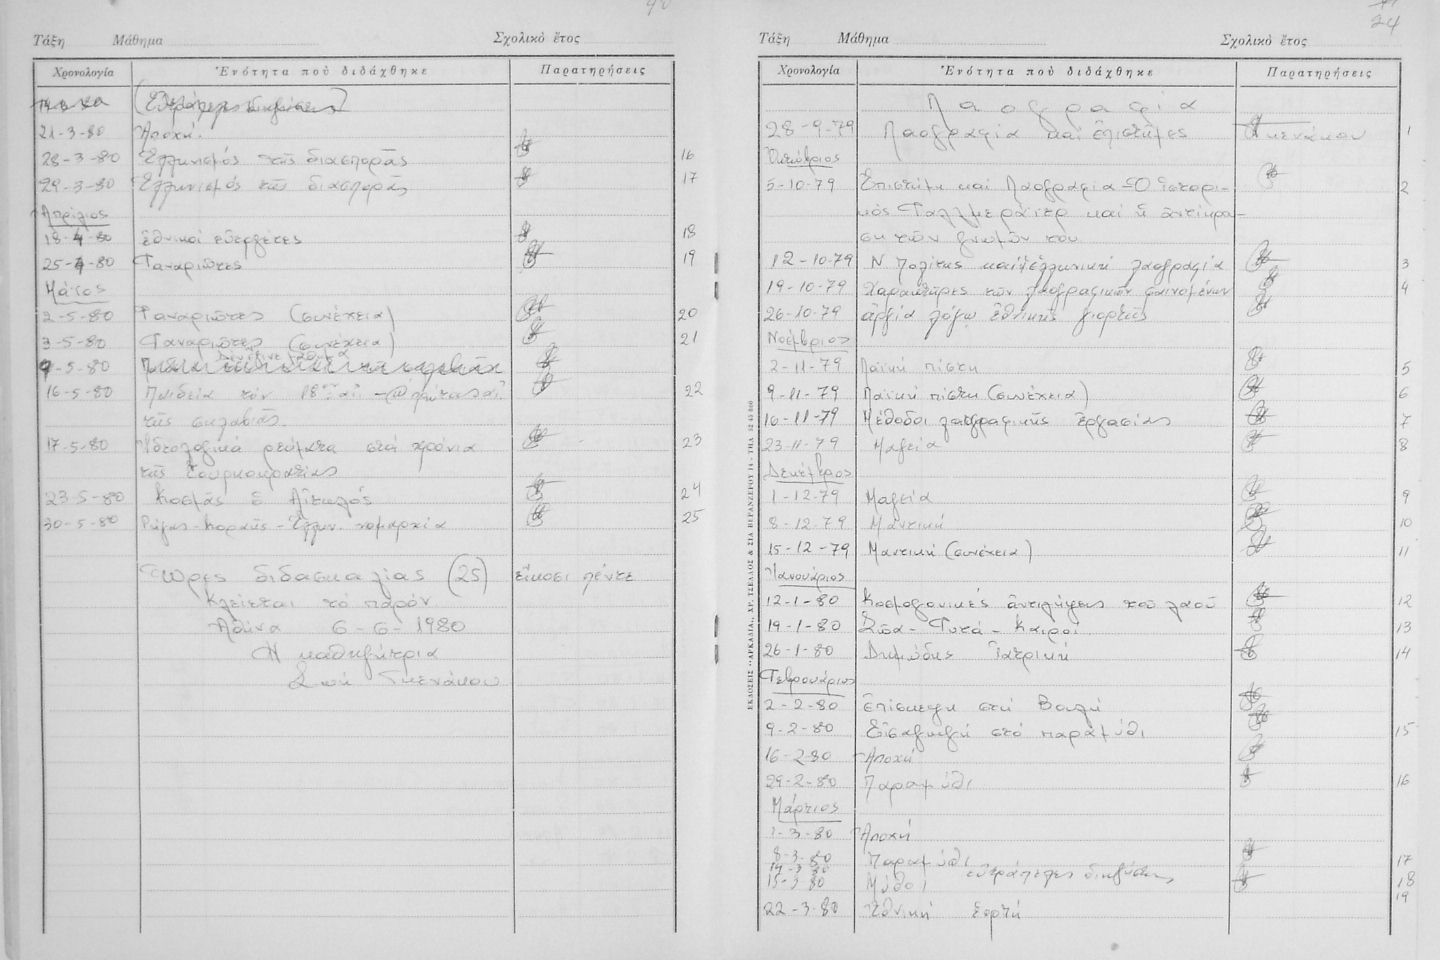 40
Τάξη Μάθημα Σχολικὸ ἔτος
Χρονολογία Ἑνότητα ποὺ διδάχθηκε Παρατηρήσεις
21-3-80 Ἀποχή.
28-3-80 Ἑλληνισμός τῆς διασπορᾶς 16
29-3-80 Ἑλληνισμός τῆς διασπορᾶς 17
Ἀπρίλιος
18-4-80 Ἐθνικοί εὐεργέτες 18
25-4-80 Φαναριῶτες 19
Μάϊος
2-5-80 Φαναριῶτες (συνέχεια) 20
3-5-80 Φαναριῶτες (συνέχεια) 21
Δέν ἔγινε μάθημα
9-5-80
16-5-80 Παιδεία τόν 18ον αἰ. 22
τῆς σκλαβιᾶς
17-5-80 Ἰδεολογικά ρεύματα στά χρόνια 23
τῆς Τουρκοκρατίας
23-5-80 Κοσμᾶς ὁ Αἰτωλός 24
30-5-80 Ρήγας-Κοραῆς-Ἑλλην. νομαρχία 25
Ὧρες διδασκαλίας (25) εἴκοσι πέντε
Κλείεται τό παρόν
Ἀθήνα 6-6-1980
Ἡ καθηγήτρια
Ζωή Γκενάκου
24
Τάξη Μάθημα Σχολικὸ ἔτος
Χρονολογία Ἑνότητα ποὺ διδάχθηκε Παρατηρήσεις
Λαογραφία
28-9-79 Λαογραφία καί ἐπιστῆμες Γκενάκου 1
Ὀκτώβριος
5-10-79 Ἐπιστήμη καί Λαογραφία-Ὁ ἱστορι- 2
κός Φαλλμεράϋερ καί ἡ ἀντίκρου-
ση τῶν γνωμῶν του
12-10-79 Ν Πολίτης καί ἡ ἑλληνική λαογραφία 3
19-10-79 Χαρακτῆρες τῶν λαογραφικῶν φαινομένων 4
26-10-79 ἀργία λόγω ἐθνικῆς γιορτῆς
Νοέμβριος
2-11-79 Λαϊκή πίστη 5
9-11-79 Λαϊκή πίστη (συνέχεια) 6
16-11-79 Μέθοδοι λαογραφικῆς ἐργασίας 7
23-11-79 Μαγεία 8
Δεκέμβριος
1-12-79 Μαγεία 9
8-12-79 Μαντική 10
15-12-79 Μαντική (συνέχεια) 11
Ἰανουάριος
12-1-80 Κοσμογονικές ἀντιλήψεις τοῦ λαοῦ 12
19-1-80 Ζῶα-Φυτά-Καιροί 13
26-1-80 Δημώδης Ἰατρική 14
Φεβρουάριος
2-2-80 ἐπίσκεψη στή Βουλή
9-2-80 Εἰσαγωγή στό παραμύθι 15
16-2-80 Ἀποχή
29-2-80 Παραμύθι 16
Μάρτιος
1-3-80 Ἀποχή
8-3-80 Παραμύθι 17
14-3-80 εὐτράπελες διηγήσεις
15-3-80 Μύθοι 18
19
22-3-80 Ἐθνική ἑορτή
ΕΚΔΟΣΕΙΣ "ΑΡΚΑΔΙΑ,, ΧΡ. ΤΣΕΛΛΟΣ & ΣΙΑ ΒΕΡΑΝΖΕΡΟΥ 14 - ΤΗΛ.